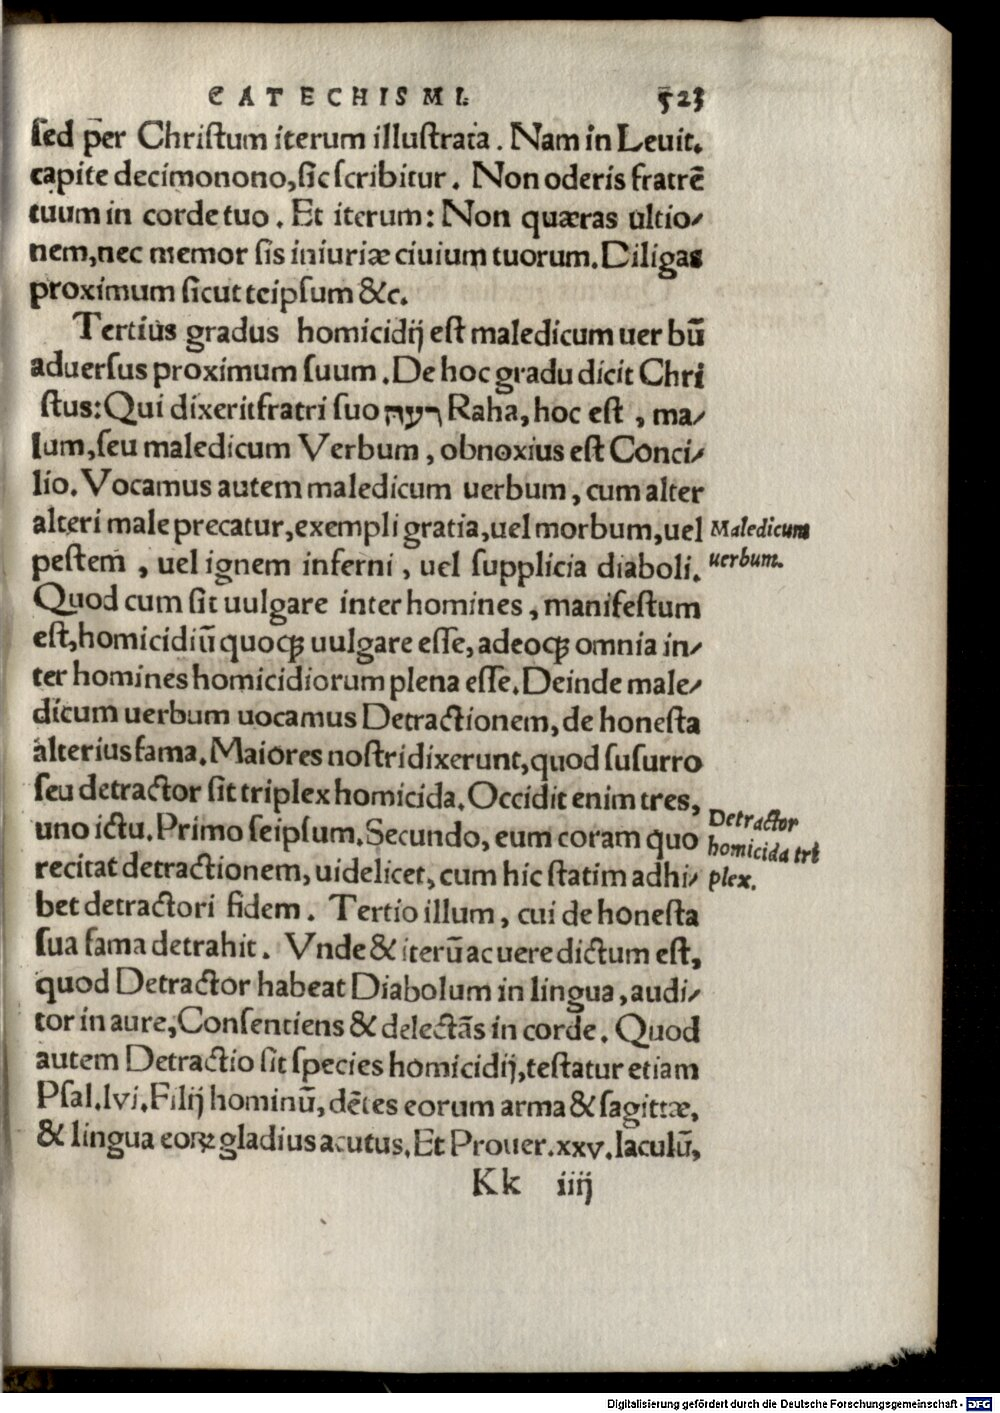 CATECHISMI. 523
sed per Christum iterum illustrata. Nam in Leuit.
capite decimonono, sic scribitur. Non oderis fratrē
tuum in corde tuo. Et iterum: Non quæras ultio-
nem, nec memor sis iniuriæ ciuium tuorum. Diligas
proximum sicut teipsum &c.
Tertius gradus homicidij est maledicum uer bū
aduersus proximum suum. De hoc gradu dicit Chri
stus: Qui dixerit fratri suo רעה Raha, hoc est, ma-
lum, seu maledicum Verbum, obnoxius est Conci-
lio. Vocamus autem maledicum uerbum, cum alter
alteri male precatur, exempli gratia, uel morbum, uel
Maledicum
pestem, uel ignem inferni, uel supplicia diaboli.
uerbum.
Quod cum sit uulgare inter homines, manifestum
est, homicidiū quoqꝫ uulgare esse, adeoqꝫ omnia in-
ter homines homicidiorum plena esse. Deinde male-
dicum uerbum uocamus Detractionem, de honesta
alterius fama. Maiores nostri dixerunt, quod susurro
seu detractor sit triplex homicida. Occidit enim tres,
Detractor
uno ictu. Primo seipsum. Secundo, eum coram quo
homicida tri
recitat detractionem, uidelicet, cum hic statim adhi-
plex.
bet detractori fidem. Tertio illum, cui de honesta
sua fama detrahit. Vnde & iterū ac uere dictum est,
quod Detractor habeat Diabolum in lingua, audi-
tor in aure, Consentiens & delectās in corde. Quod
autem Detractio sit species homicidij, testatur etiam
Psal. lvi. Filij hominū, dētes eorum arma & sagittæ,
& lingua eoꝝ gladius acutus. Et Prouer. xxv. Iaculū,
Kk iiij
Digitalisierung gefördert durch die Deutsche Forschungsgemeinschaft - DFG